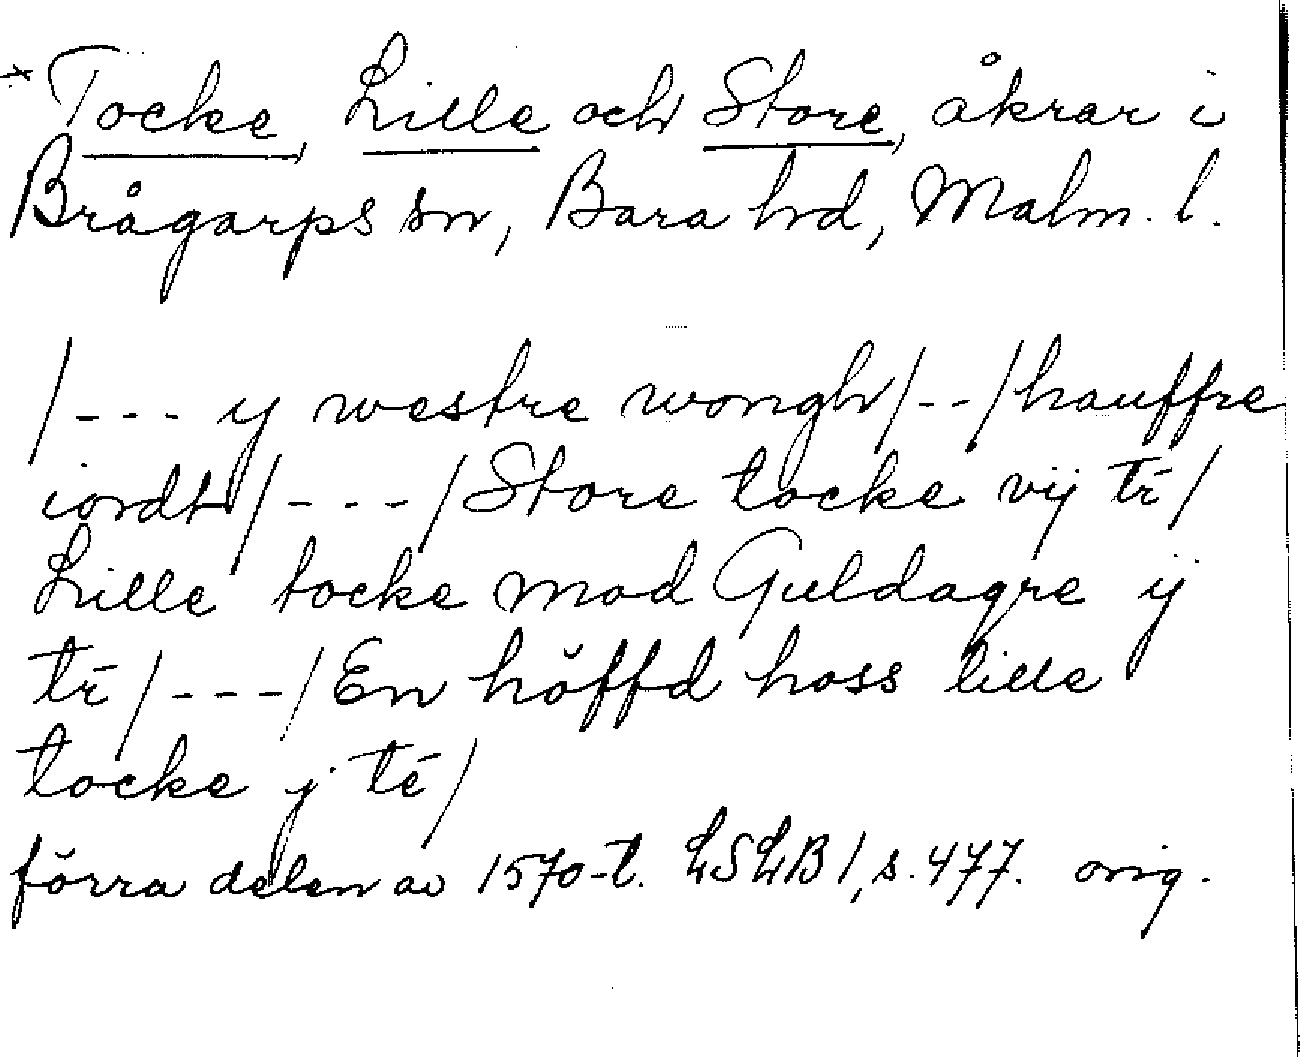 * Tocke, Lille och Store, åkrar i
Brågarps sn, Bara hrd, Malm. l.
/--- y westre wongh/--/hauffre
iordt/---/Store tocke vij tr̄/
Lille tocke mod Guldagre ij
tr̄/---/En höffd hoss lille
tocke j tē/
förra delen av 1570-t. LSLB 1, s. 477. orig.